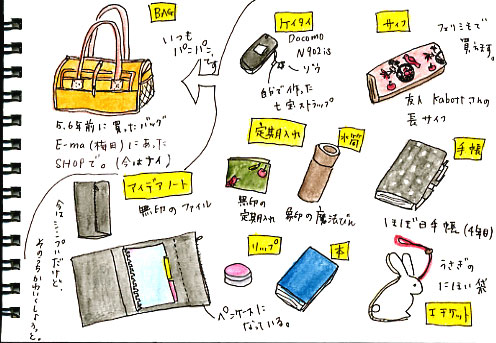 BAG
いつも
パンパンです。
5.6年前に買ったバッグ
E-ma(梅田)にあった
SHOPで。(今はナイ)
ケイタイ
Docomo
N902is
ゾウ
自分で作った
七宝ストラップ
サイフ
フェリシモで
買えます。
友人 Kabottさんの
長サイフ
定期入れ
無印の
定期入れ
水筒
無印の魔法びん
手帳
ほぼ日手帳(4年目)
アイデアノート
無印のファイル
今はシンプルだけど、
そのうちかわいくしようっと。
ペンケースに
なっている。
リップ
本
うさぎの
におい袋
エチケット